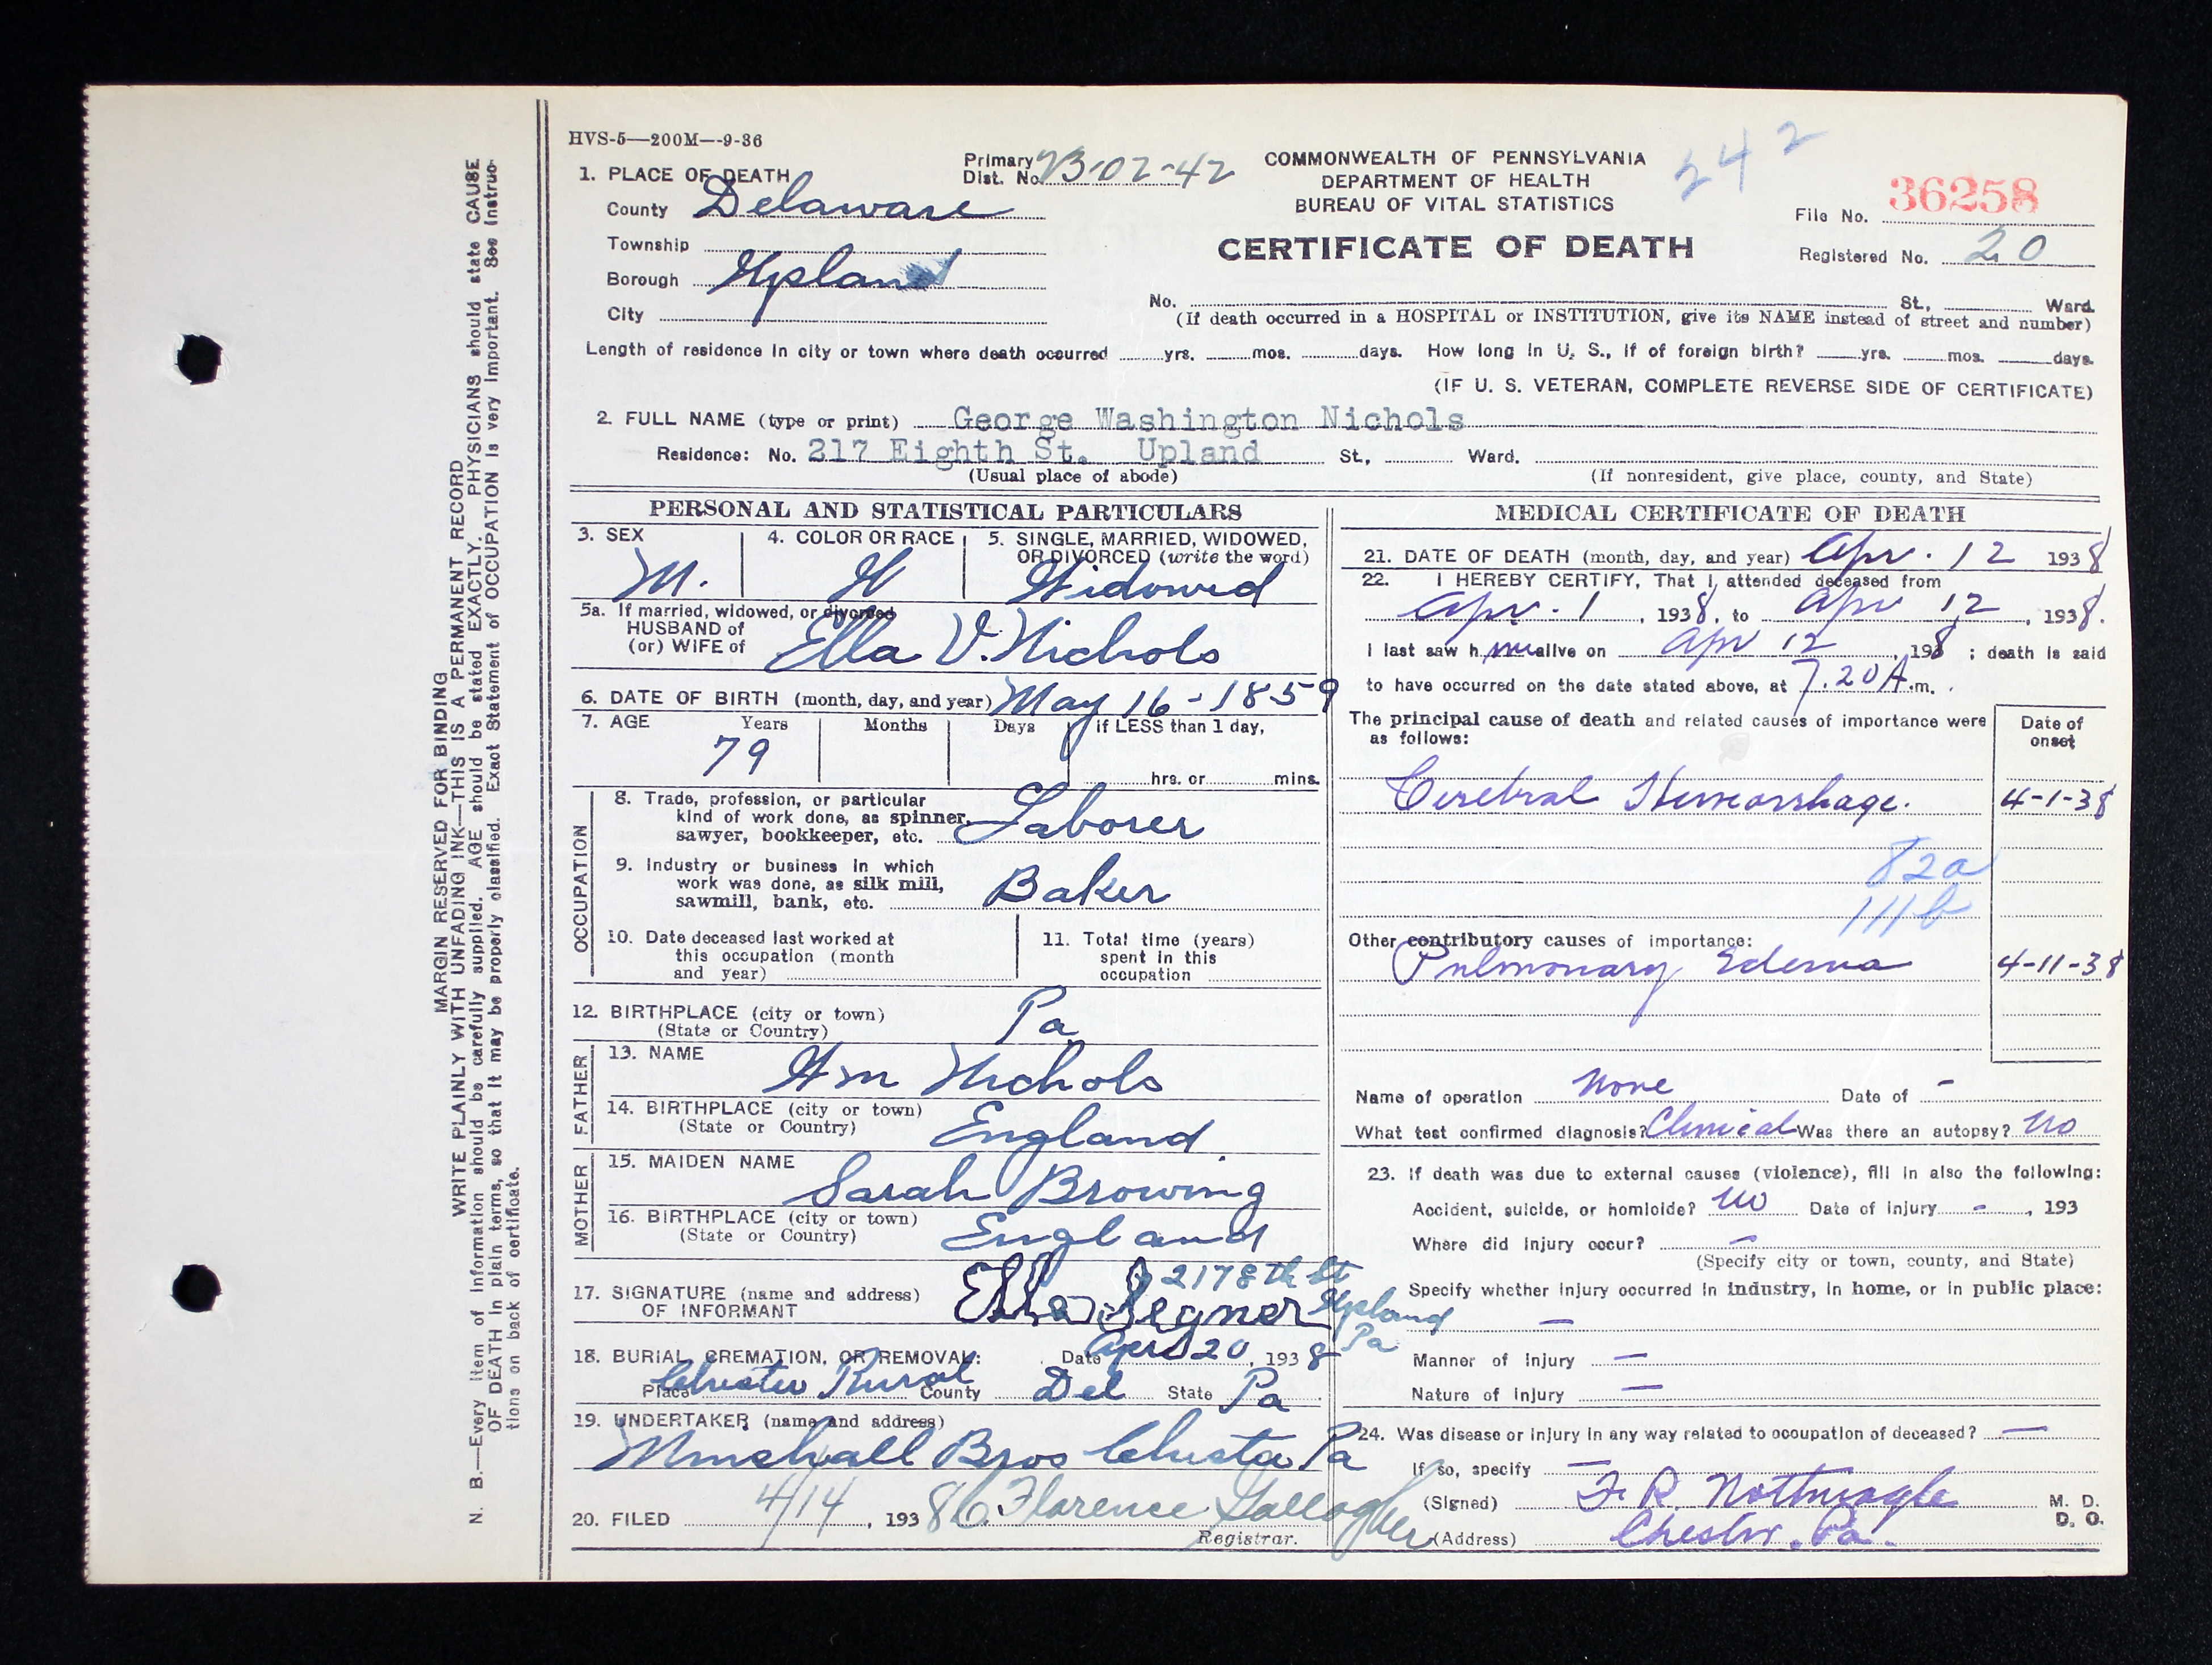 HVS-5—200M—9-36
1. PLACE OF DEATH
County Delaware
Township
Borough Upland
City
Primary Dist. No. 23-02-42
COMMONWEALTH OF PENNSYLVANIA
DEPARTMENT OF HEALTH
BUREAU OF VITAL STATISTICS
CERTIFICATE OF DEATH
242
File No. 36258
Registered No. 20
No. St., Ward.
(If death occurred in a HOSPITAL or INSTITUTION, give its NAME instead of street and number)
Length of residence in city or town where death occurred yrs. mos. days. How long in U. S., if of foreign birth? yrs. mos. days.
(IF U. S. VETERAN, COMPLETE REVERSE SIDE OF CERTIFICATE)
2. FULL NAME (type or print) George Washington Nichols
Residence: No. 217 Eighth St. Upland St., Ward.
(Usual place of abode) (If nonresident, give place, county, and State)
PERSONAL AND STATISTICAL PARTICULARS
3. SEX M.
4. COLOR OR RACE W
5. SINGLE, MARRIED, WIDOWED, OR DIVORCED (write the word) Widowed
5a. If married, widowed, or divorced
HUSBAND of
(or) WIFE of Ella V. Nichols
6. DATE OF BIRTH (month, day, and year) May 16-1859
7. AGE Years Months Days If LESS than 1 day,
79 hrs. or mins.
OCCUPATION
8. Trade, profession, or particular
kind of work done, as spinner,
sawyer, bookkeeper, etc. Laborer
9. Industry or business in which
work was done, as silk mill,
sawmill, bank, etc. Baker
10. Date deceased last worked at
this occupation (month
and year)
11. Total time (years)
spent in this
occupation
12. BIRTHPLACE (city or town)
(State or Country) Pa
FATHER
13. NAME Wm Nichols
14. BIRTHPLACE (city or town)
(State or Country) England
MOTHER
15. MAIDEN NAME Sarah Browing
16. BIRTHPLACE (city or town)
(State or Country) England
17. SIGNATURE (name and address)
OF INFORMANT Ella 217 8th St Upland Pa
18. BURIAL, CREMATION, OR REMOVAL: Date April 20, 1938
Place Chester Rural County Del State Pa
19. UNDERTAKER (name and address)
Minshall Bros Chester Pa
20. FILED 4/14, 1938 Florence Gallagher
Registrar.
MEDICAL CERTIFICATE OF DEATH
21. DATE OF DEATH (month, day, and year) Apr. 12 1938
22. I HEREBY CERTIFY, That I attended deceased from
Apr. 1, 1938, to Apr 12, 1938.
I last saw h im alive on Apr 12, 198; death is said
to have occurred on the date stated above, at 7.20 A.m.
The principal cause of death and related causes of importance were
as follows:
Date of
onset
Cerebral Hemorrhage. 4-1-38
82a
111b
Other contributory causes of importance:
Pulmonary Edema 4-11-38
Name of operation None Date of -
What test confirmed diagnosis? Clinical Was there an autopsy? No
23. If death was due to external causes (violence), fill in also the following:
Accident, suicide, or homicide? No Date of injury -, 193
Where did injury occur? —
(Specify city or town, county, and State)
Specify whether injury occurred in industry, in home, or in public place:
—
Manner of injury —
Nature of injury —
24. Was disease or injury in any way related to occupation of deceased? —
If so, specify —
(Signed) F. R. Nothnagle M. D.
D. O.
(Address) Chester, Pa.
MARGIN RESERVED FOR BINDING
WRITE PLAINLY WITH UNFADING INK—THIS IS A PERMANENT RECORD
N. B.—Every item of information should be carefully supplied. AGE should be stated EXACTLY. PHYSICIANS should state CAUSE
OF DEATH in plain terms, so that it may be properly classified. Exact Statement of OCCUPATION is very important. See Instruc-
tions on back of certificate.